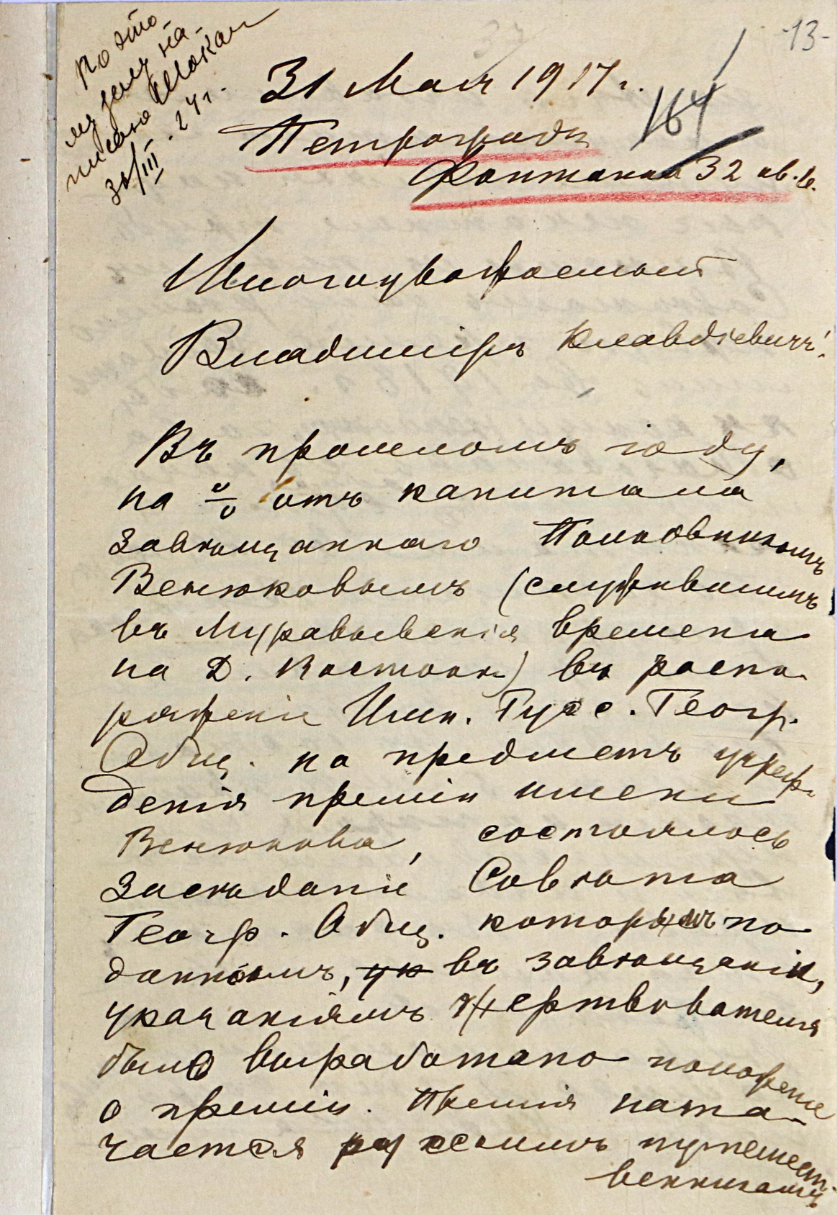 По это
му делу на-
писано Шокал
31/III. 24 г.
-13-
164
31 Мая 1917 г.
Петроградъ
Фонтанка 32 кв. 6.
Многоуважаемый
Владиміръ Клавдіевичъ!
Въ прошломъ году,
на % отъ капитала
завѣщаннаго Полковникомъ
Венюковымъ (служившимъ
въ Муравьевскія времена
на Д. Востокѣ) въ распо-
ряженіе Имп. Русс. Геогр.
Общ. на предметъ учреж-
денія преміи имени
Венюкова, состоялось
Засѣданіе Совѣта
Геогр. Общ. которымъ по
даннымъ, въ завѣщаніи,
указаніямъ жертвователя
было выработано положеніе
о преміи. Премія назна-
чается русскимъ путешест-
венникамъ